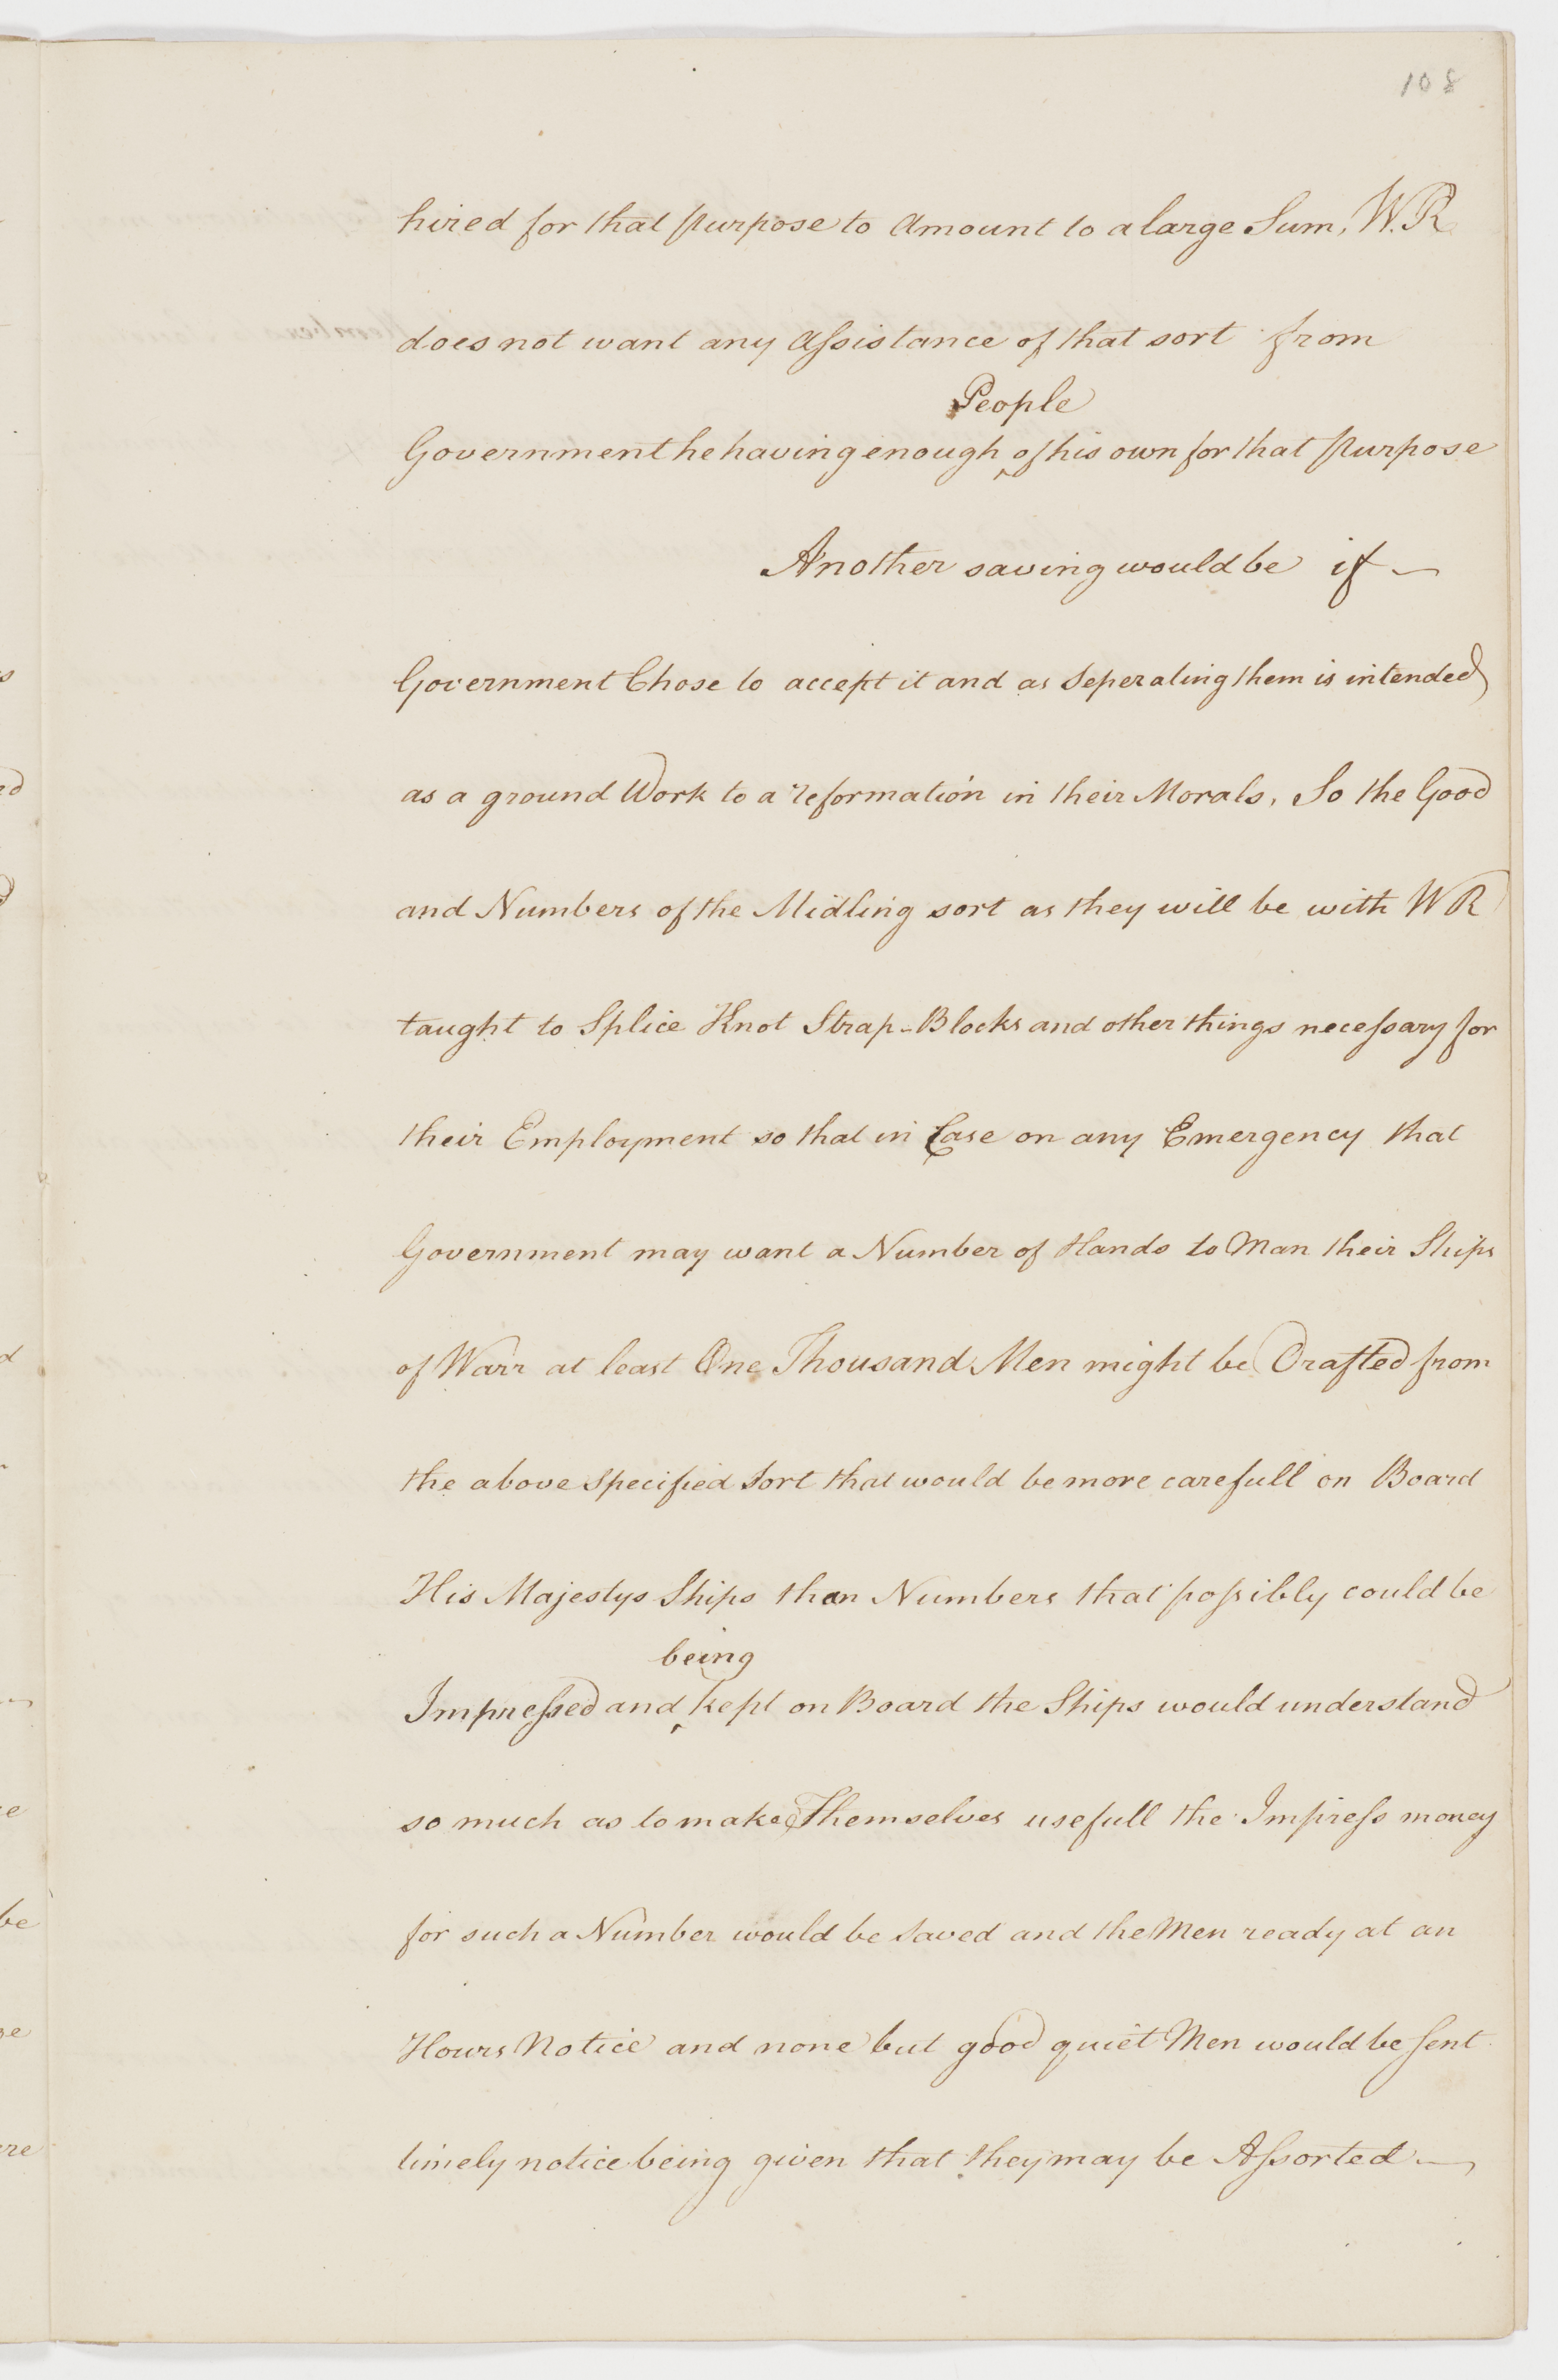 108
hired for that purpose to Amount to a large Sum, W.R
does not want any Assistance of that sort from
People
Government he having enough ‸ of his own for that purpose
Another saving would be if —
Government Chose to accept it and as Seperating them is intended
as a ground Work to a reformation in their Morals, So the Good
and Numbers of the Midling sort as they will be with W R
taught to Splice Knot Strap-Blocks and other things necessary for
their Employment so that in Case on any Emergency that
Government may want a Number of Hands to Man their Ships
of Warr at least One Thousand Men might be Drafted from
the above specified Sort that would be more carefull on Board
His Majestys Ships than Numbers that possibly could be
being
Impressed and ‸ kept on Board the Ships would understand
so much as to make Themselves usefull the Impress money
for such a Number would be Saved and the Men ready at an
Hours Notice and none but good quiet Men would be Sent
timely notice being given that they may be Assorted —